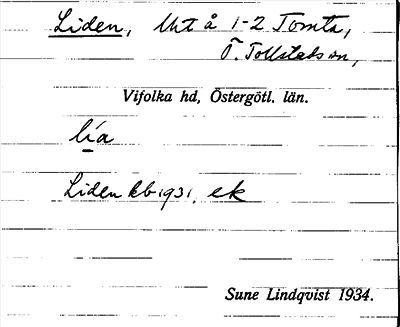 Liden, Utt å 1-2 Tomta,
Ö. Tollstads sn,
Vifolka hd, Östergötl. län.
li̱a
Liden kb 1931, ek
Sune Lindqvist 1934.